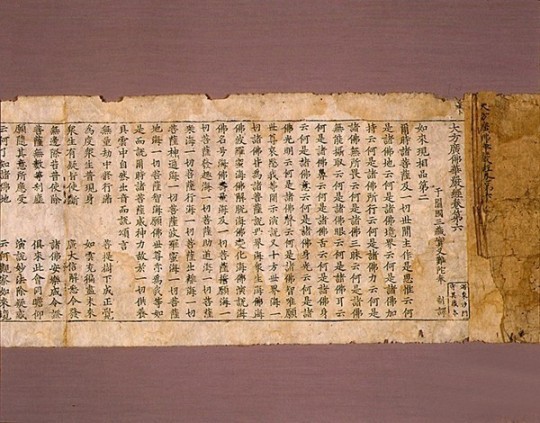 大方廣佛華嚴經卷第六
于闐國三藏實叉難陀奉 制譯
如來現相品第二
爾時諸菩薩及一切世間主作是思惟云何
是諸佛地云何是諸佛境界云何是諸佛加
持云何是諸佛所行云何是諸佛力云何是
諸佛無所畏云何是諸佛三昧云何是諸佛
無能攝取云何是諸佛眼云何是諸佛耳云
何是諸佛鼻云何是諸佛舌云何是諸佛身
云何是諸佛意云何是身光云何是諸
佛光明云何是諸佛聲云何是諸佛智唯願
世尊哀愍我等開示演說又十方世界海一
切諸佛皆為諸菩薩說世界海眾生海佛海
佛波羅蜜海佛解脫海佛變化海佛演說海
佛名号海佛壽量海及一切菩薩誓願海一
切菩薩發趣海一切菩薩助道海一切菩薩
乘海一切菩薩行海一切菩薩出離海一切
菩薩神通海一切菩薩波羅蜜海一切菩薩
地海一切菩薩智海願佛世尊亦為我等如
是而說爾時諸菩薩威神力故於一切供養
具雲中自然出音而說頌言
無量劫中修行滿 菩提樹下成正覺
為度眾生普現身 如雲充遍盡未來
眾生有疑皆使斷 廣大信解悉令發
無邊際苦普使除 諸佛安樂咸令證
菩薩無數等剎塵 俱來此會同瞻仰
願隨其意所應受 演說妙法除疑惑
云何了知諸佛地 云何觀察如來境